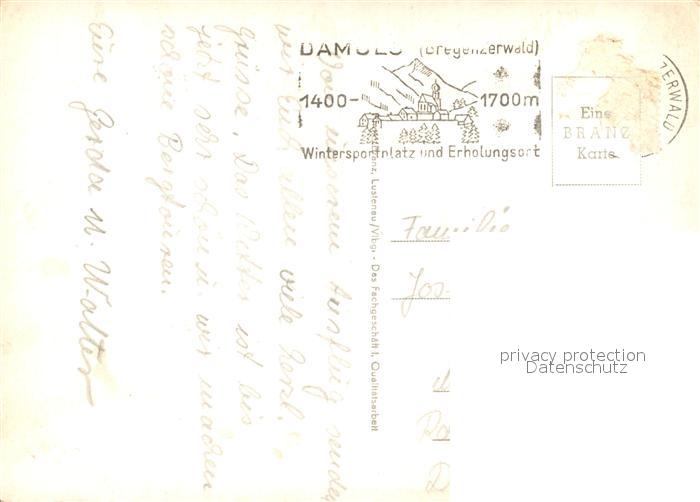 DAMÜLS (Bregenzerwald)
1400-1700m
Wintersportplatz und Erholungsort
ZERWALD
Eine
BRANZ
Karte
Von unserem Ausflug senden
wir Euch allen viele herzl.
Grüsse. Das Wetter ist bis
jetzt sehr schön u. wir machen
schöne Bergtouren.
Eure Gerda u. Walter
Branz, Lustenau/Vlbg. - Das Fachgeschäft f. Qualitätsarbeit
Familie
Jos
privacy protection
Datenschutz